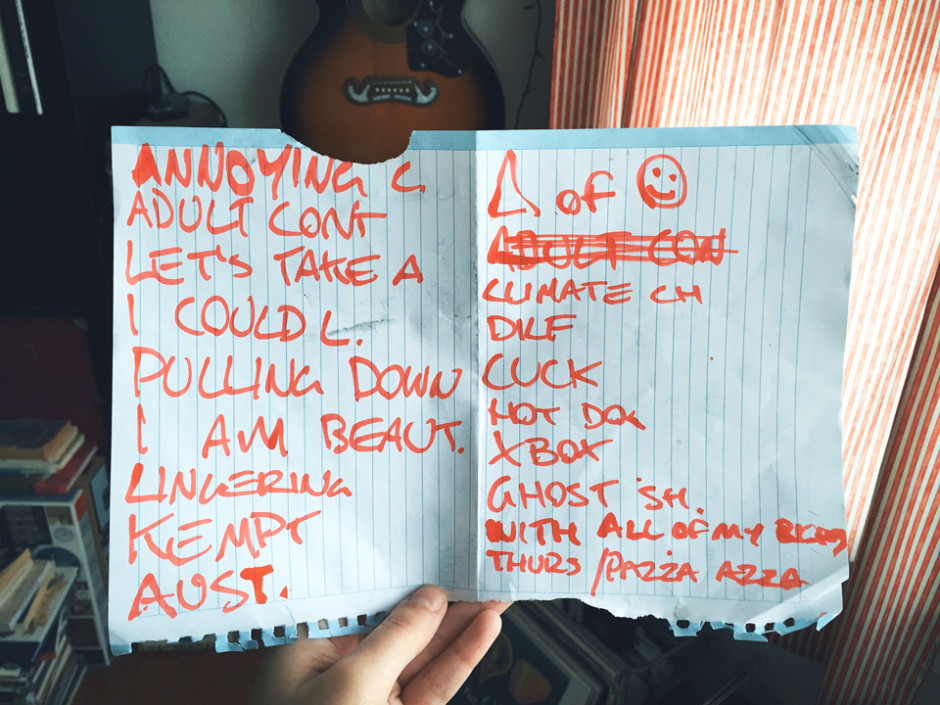 ANNOYING C.
ADULT CONT
LET'S TAKE A
I COULD L.
PULLING DOWN
I AM BEAUT.
LINGERING
KEMPT
AUST.
of
ADULT CON
CLIMATE CH
DILF
CUCK
HOT DOG
XBOX
GHOST SH.
WITH ALL OF MY
THURS / PAZZA AZZA